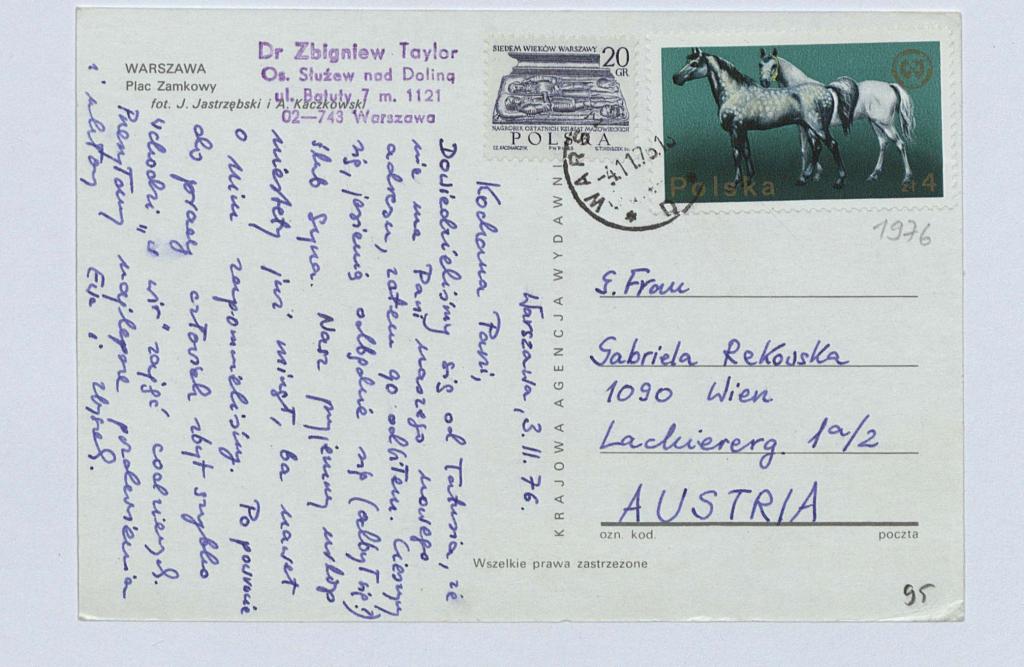 WARSZAWA
Plac Zamkowy
fot. J. Jastrzębski i A. Kaczkowski
Dr Zbigniew Taylor
Os. Służew nad Doliną
ul. Batuty 7 m. 1121
02—743 Warszawa
SIEDEM WIEKÓW WARSZAWY
20
GR
NAGROBEK OSTATNICH KSIĄŻĄT MAZOWIECKICH
POLSKA
Polska
zł 4
WARS
-4.11.76.18
1976
Warszawa, 3. 11. 76.
Kochana Pani,
Dowiedzieliśmy się od Tatusia, że
nie ma Pani naszego nowego
adresu, zatem go odbiłem. Cieszymy
się, jesienią odbędzie się (odbył się?)
ślub Syna. Nasz przyjemny urlop
niestety już minął, ba nawet
o nim zapomnieliśmy. Po powrocie
do pracy człowiek zbyt szybko
wchodzi "w wir" zajęć codziennych.
Przesyłamy najlepsze pozdrowienia
i ukłony Ewa i Zbyszek.
KRAJOWA AGENCJA WYDAWNI
G. Frau
Gabriela Rekowska
1090 Wien
Lackiererg. 1a/2
AUSTRIA
ozn. kod.
poczta
Wszelkie prawa zastrzeżone
95